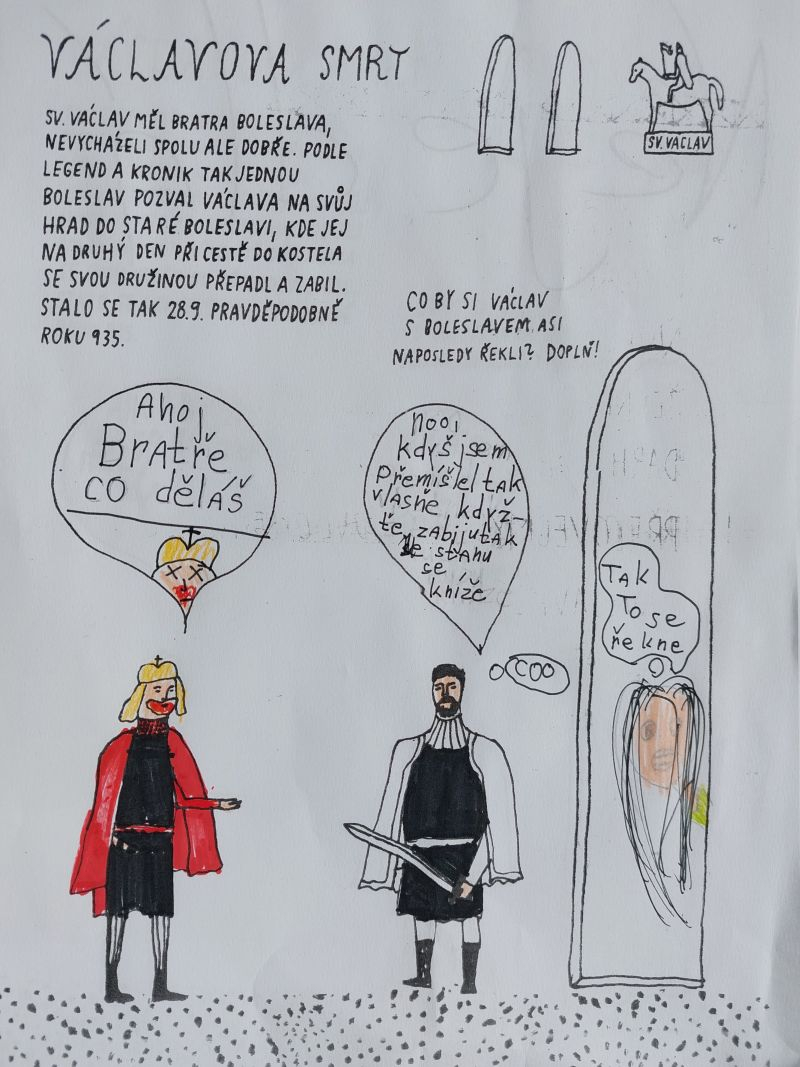 VÁCLAVOVA SMRT
SV. VÁCLAV
SV. VÁCLAV MĚL BRATRA BOLESLAVA,
NEVYCHÁZELI SPOLU ALE DOBŘE. PODLE
LEGEND A KRONIK TAK JEDNOU
BOLESLAV POZVAL VÁCLAVA NA SVŮJ
HRAD DO STARÉ BOLESLAVI, KDE JEJ
NA DRUHÝ DEN PŘI CESTĚ DO KOSTELA
SE SVOU DRUŽINOU PŘEPADL A ZABIL.
STALO SE TAK 28.9. PRAVDĚPODOBNĚ
ROKU 935.
CO BY SI VÁCLAV
S BOLESLAVEM ASI
NAPOSLEDY ŘEKLI? DOPLŇ!
Ahoj
Bratře
co děláš
nooi
kdyš jsem
Přemíšlel tak
vlasně když-
ťe zabijutak
se sťahu
se
kníže
COO
TAK
To se
řekne